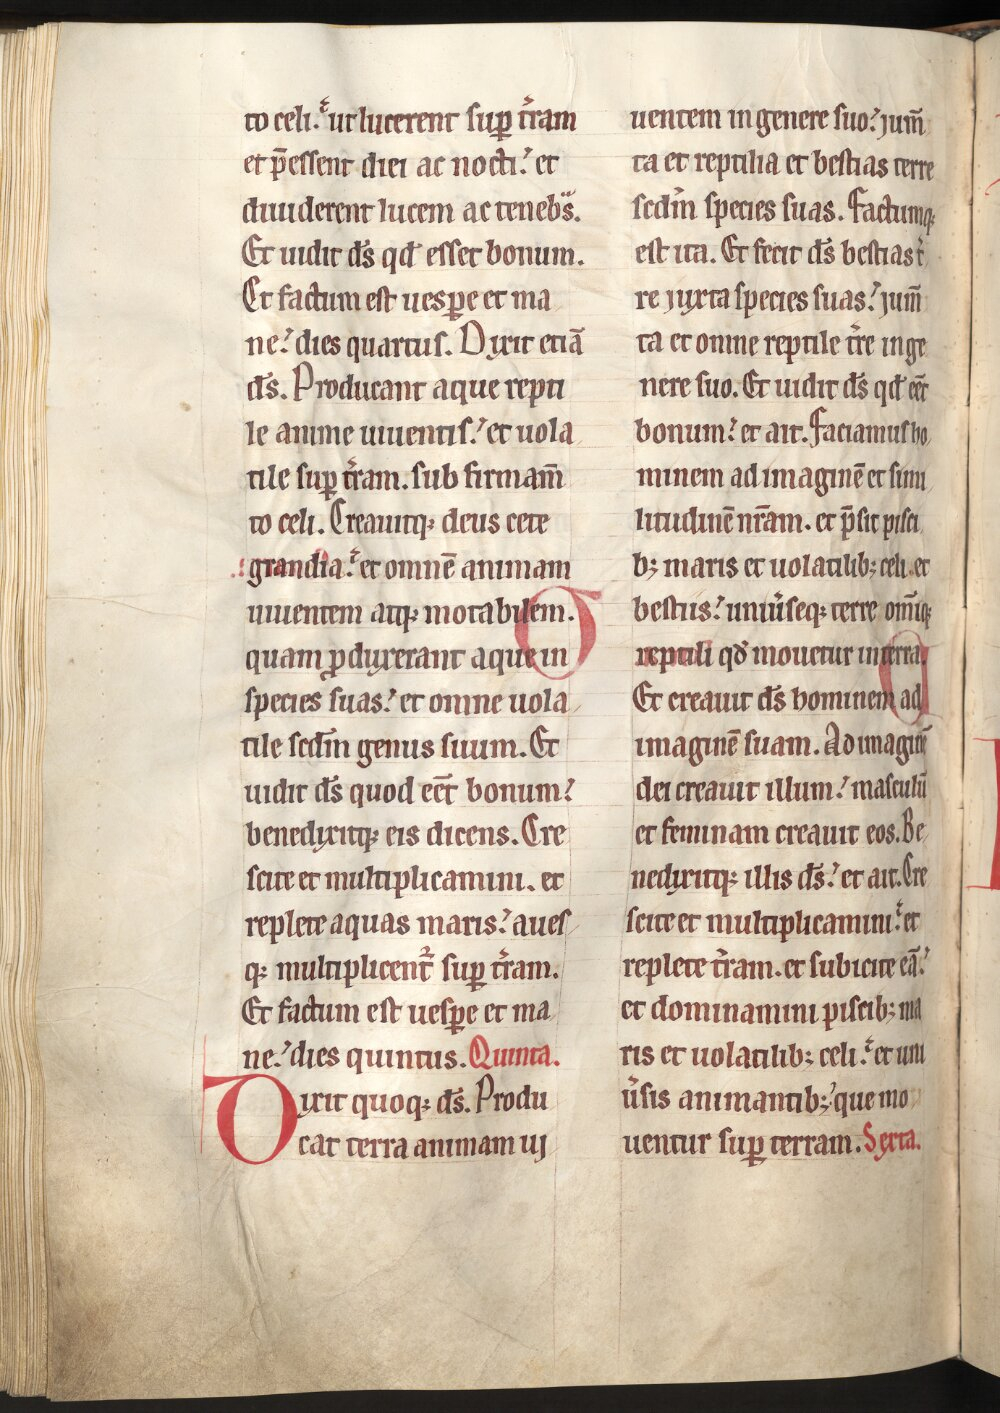 to celi. ut lucerent sup̱ t̄ram
et p̄essent diei ac nocti. et
diuiderent lucem ac tenebꝰs.
Et uidit d̄s qđ esset bonum.
Et factum est uesp̱e et ma
ne. dies quartus. Dixit etiā
d̄s. Producant aque repti
le anime uiuentis. et uola
tile sup̱ t̄ram. sub firmam̄
to celi. Creauitqꝫ deus cete
grandia. et omnē animam
uiuentem atqꝫ motabilem.
quam ꝓduxerant aque in
species suas. et omne uola
tile scd̄m genus suum. Et
uidit d̄s quod eēt bonum.
benedixitqꝫ eis dicens. Cre
scite et multiplicamini. et
replete aquas maris. aues
qꝫ multiplicent᷑ sup̱ t̄ram.
Et factum est uesp̱e et ma
ne. dies quintus. Quinta.
Dixit quoqꝫ d̄s. Produ
cat terra animam ui
uentem in genere suo. jum̄
ta et reptilia et bestias terre
scd̄m species suas. Factumqꝫ
est ita. Et fecit d̄s bestias t̄
re juxta species suas. jum̄
ta et omne reptile t̄re in ge
nere suo. Et uidit d̄s qđ eēt
bonum. et ait. Faciamus ho
minem ad imaginē et simi
litudinē nr̄am. et p̄sit pisci
bꝫ maris et uolatilibꝫ celi. et
bestiis. uniu̓seqꝫ terre om̄iqꝫ
reptili qđ mouetur in terra.
Et creauit d̄s hominem ad
imaginē suam. Ad imaginē
dei creauit illum. masculū
et feminam creauit eos. Be
nedixitqꝫ illis d̄s. et ait. Cre
scite et multiplicamini. et
replete t̄ram. et subicite eā.
et dominamini piscibꝫ ma
ris et uolatilibꝫ celi. et uni
u̓sis animantibꝫ. que mo
uentur sup̱ terram. Sexta.